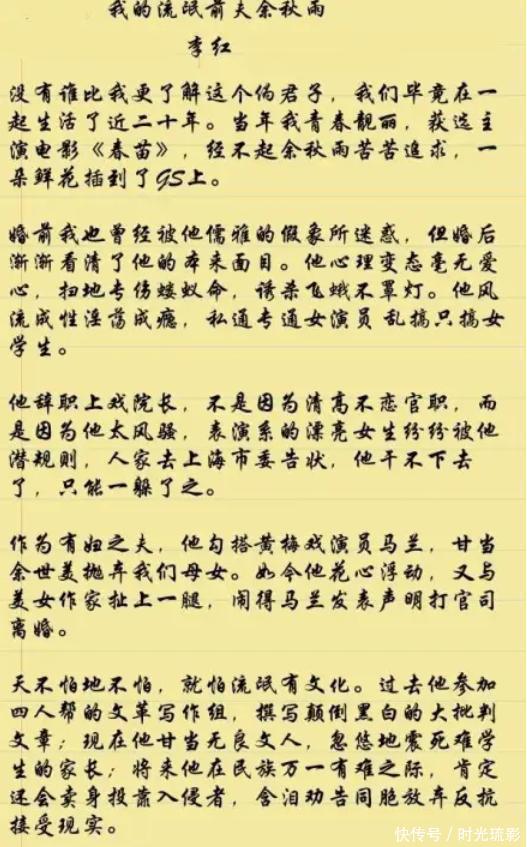 我的流氓前夫余秋雨
李红
没有谁比我更了解这个伪君子，我们毕竟在一
起生活了近二十年。当年我青春靓丽，获选主
演电影《春苗》，经不起余秋雨苦苦追求，一
朵鲜花插到了GS上。
婚前我也曾经被他儒雅的假象所迷惑，但婚后
渐渐看清了他的本来面目。他心理变态毫无爱
心，扫地专伤蝼蚁命，诱杀飞蛾不罩灯。他风
流成性淫荡成瘾，私通专通女演员乱搞只搞女
学生。
他辞职上戏院长，不是因为清高不恋官职，而
是因为他太风骚，表演系的漂亮女生纷纷被他
潜规则，人家去上海市委告状，他干不下去
了，只能一躲了之。
作为有妇之夫，他勾搭黄梅戏演员马兰，甘当
余世美抛弃我们母女。如今他花心浮动，又与
美女作家扯上一腿，闹得马兰发表声明打官司
离婚。
天不怕地不怕，就怕流氓有文化。过去他参加
四人帮的文革写作组，撰写颠倒黑白的大批判
文章；现在他甘当无良文人，忽悠地震死难学
生的家长；将来他在民族万一有难之际，肯定
还会卖身投靠入侵者，含泪劝告同胞放弃反抗
接受现实。
快传号/时光琉影